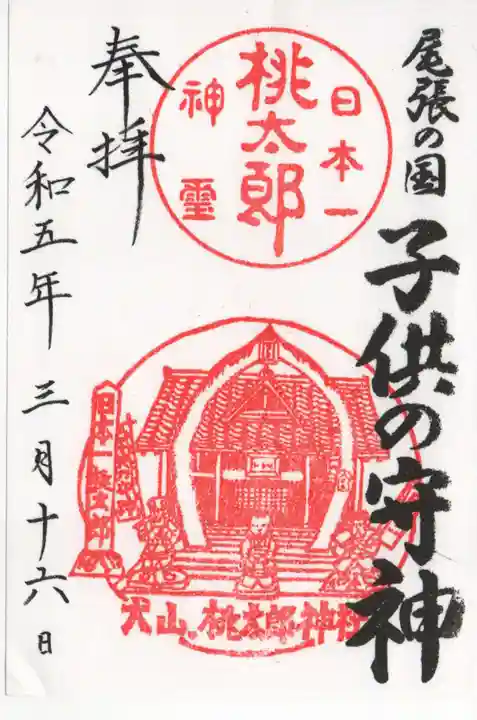 尾張の国
子供の守神
日本一
桃太郎
神霊
奉拝
令和五年 三月十六日
日本一桃太郎
犬山 桃太郎神社